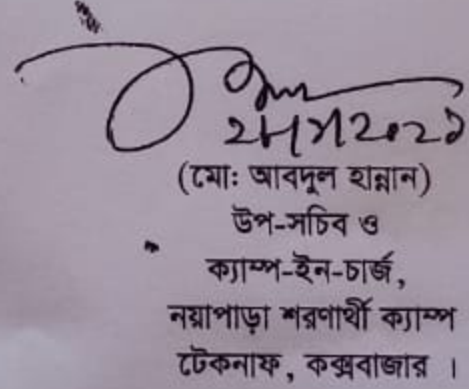 (মোঃ আবদুল হান্নান)
উপ-সচিব ও
ক্যাম্প-ইন-চার্জ,
নয়াপাড়া শরণার্থী ক্যাম্প
টেকনাফ, কক্সবাজার ।